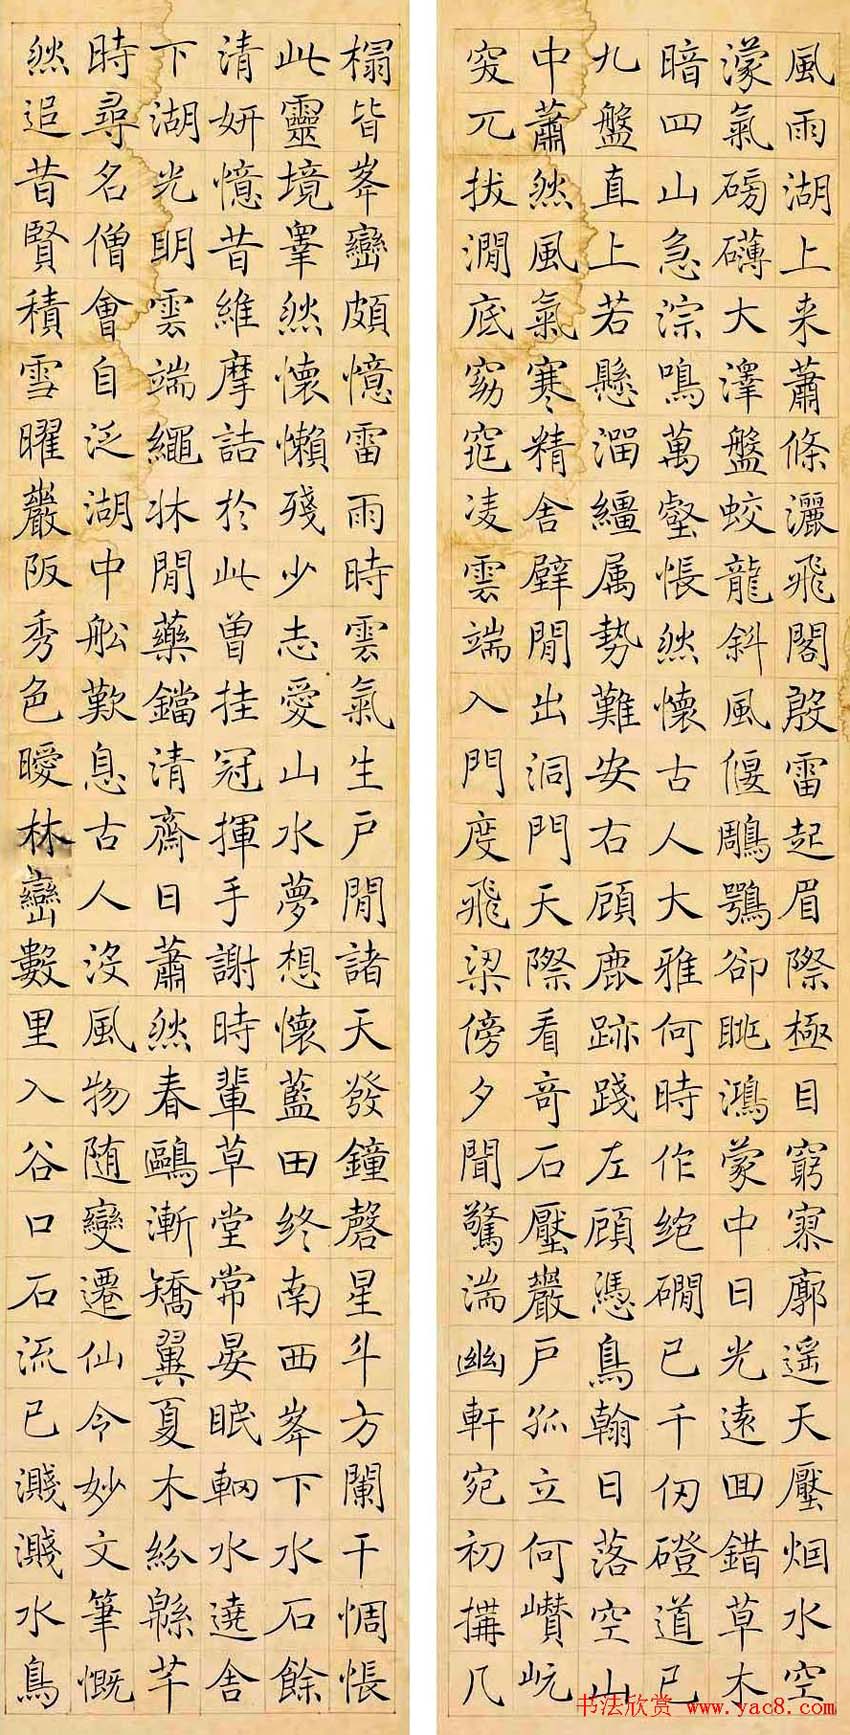 風雨湖上来蕭條灑飛閣殷雷起眉際極目窮寥廓遥天壓烟水空
濛氣磅礴大澤盤蛟龍斜風偃鵰鶚卻眺鴻蒙中日光遠囬錯草木
暗四山急淙鳴萬壑悵然懷古人大雅何時作絶磵已千仞磴道已
九盤直上若懸溜繮属勢難安右顧鹿跡踐左顧憑鳥翰日落空山
中蕭然風氣寒精舍壁閒出洞門天際看奇石壓巖戶孤立何巑岏
突兀拔澗底窈窕凌雲端入門度飛梁傍夕聞驚湍幽軒宛初搆几
榻皆峯巒頗憶雷雨時雲氣生戶閒諸天發鐘磬星斗方闌干惆悵
此靈境睪然懷懶殘少志愛山水夢想懷藍田終南西峯下水石餘
清妍憶昔維摩詰於此曽挂冠揮手謝時輩草堂常晏眠輞水遶舍
下湖光明雲端繩牀閒藥鐺清齋日蕭然春鷗漸矯翼夏木紛緜芊
時尋名僧會自泛湖中舩歎息古人没風物随變遷仙令妙文筆慨
然追昔賢積雪曜巖阪秀色曖林巒數里入谷口石流已濺濺水鳥
书法欣赏 www.yac8.com